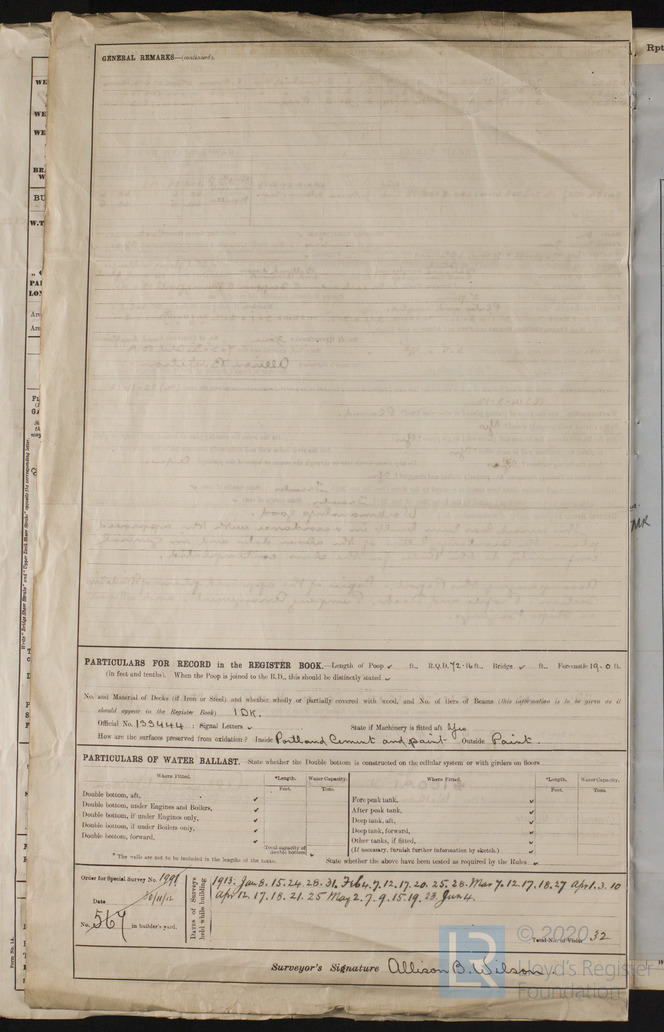 GENERAL REMARKS—(continued).
PARTICULARS FOR RECORD in the REGISTER BOOK.—Length of Poop ✓ ft., R.Q.D. 72·16 ft., Bridge ✓ ft., Forecastle 19·0 ft.
(in feet and tenths). When the Poop is joined to the B.D., this should be distinctly stated ✓
No. and Material of Decks (if Iron or Steel) and whether wholly or partially covered with wood, and No. of tiers of Beams (this information is to be given as it
should appear in the Register Book) 1 DK.
Official No. 133444 : Signal Letters ✓ State if Machinery is fitted aft Yes
How are the surfaces preserved from oxidation? Inside Portland Cement and paint Outside Paint.
PARTICULARS OF WATER BALLAST.—State whether the Double bottom is constructed on the cellular system or with girders on floors
Where Fitted. *Length. Water Capacity. Where Fitted. *Length. Water Capacity.
Feet. Tons. Feet. Tons.
Double bottom, aft, ✓ Fore peak tank, ✓
Double bottom, under Engines and Boilers, ✓ After peak tank, ✓
Double bottom, if under Engines only, ✓ Deep tank, aft, ✓
Double bottom, if under Boilers only, ✓ Deep tank, forward, ✓
Double bottom, forward, ✓ Other tanks, if fitted, ✓
Total capacity of double bottom ✓ (If necessary, furnish further information by sketch.) ✓
* The wells are not to be included in the lengths of the tanks. State whether the above have been tested as required by the Rules ✓
Order for Special Survey No. 1991
Date 26/11/12
No. 567 in builder's yard.
Dates of Surveys held while building
1913: Jan 8. 15. 24. 28. 31. Feb 4. 7. 12. 17. 20. 25. 28. Mar 7. 12. 17. 18. 27 Apr 1. 3. 10
Apr 12. 17. 18. 21. 25 May 2. 7. 9. 15. 19. 23. Jun 4.
Total No. of Visits 32
Surveyor's Signature Allison B. Wilson
© 2020
Lloyd's Register
Foundation
LR
Rpt